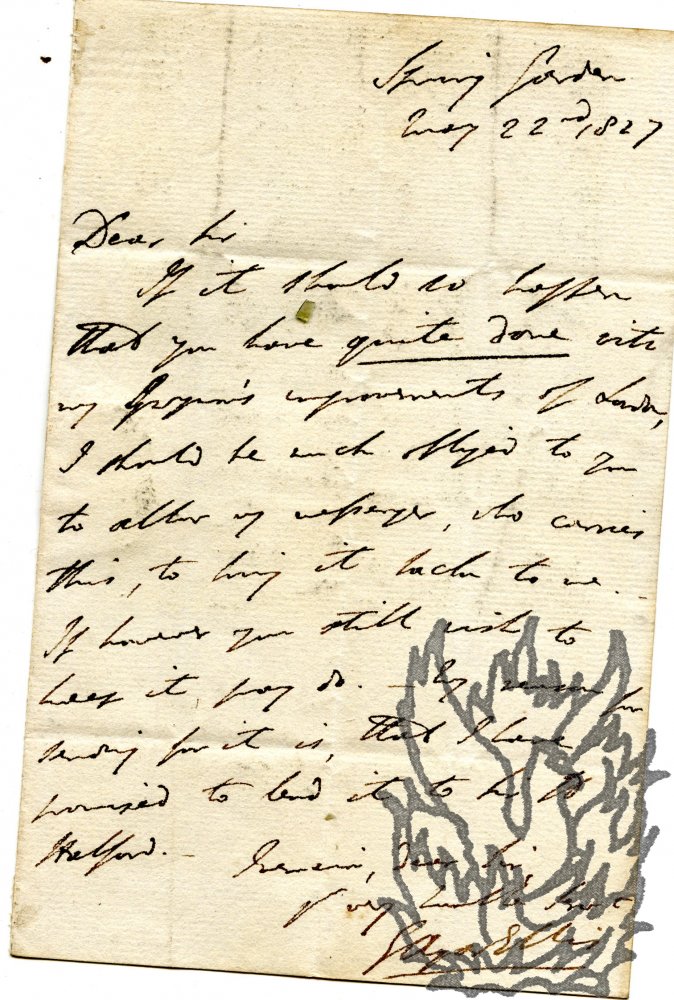 Spring Garden
May 22nd 1827
Dear Sir
If it should so happen
that you have quite done with
my Gwynn's improvements of London,
I should be much obliged to you
to allow my messenger, who carries
this, to bring it back to me. -
If however you still wish to
keep it, pray do. - My reason for
sending for it is, that I have
promised to lend it to
- I remain, dear Sir,
yr very humble Servt
Agar Ellis